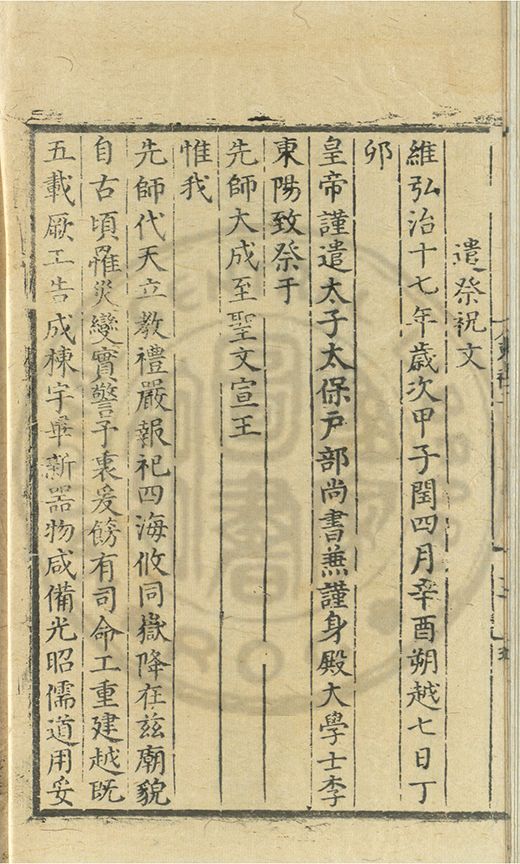 遣祭祝文
維弘治十七年歲次甲子閏四月辛酉朔越七日丁
卯
皇帝謹遣太子太保戶部尚書兼謹身殿大學士李
東陽致祭于
先師大成至聖文宣王
惟我
先師代天立教禮嚴報祀四海攸同嶽降在茲廟貌
自古頃罹災變實警予衷爰飭有司命工重建越旣
五載厥工告成棟宇畢新器物咸備光昭儒道用妥